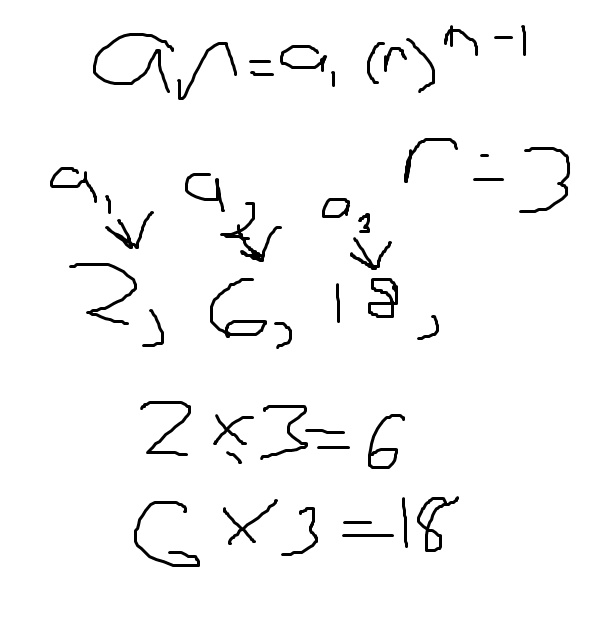 aₙ=a₁(r)ⁿ⁻¹
r=3
a₁ a₂ a₃
2, 6, 18,
2×3=6
6×3=18